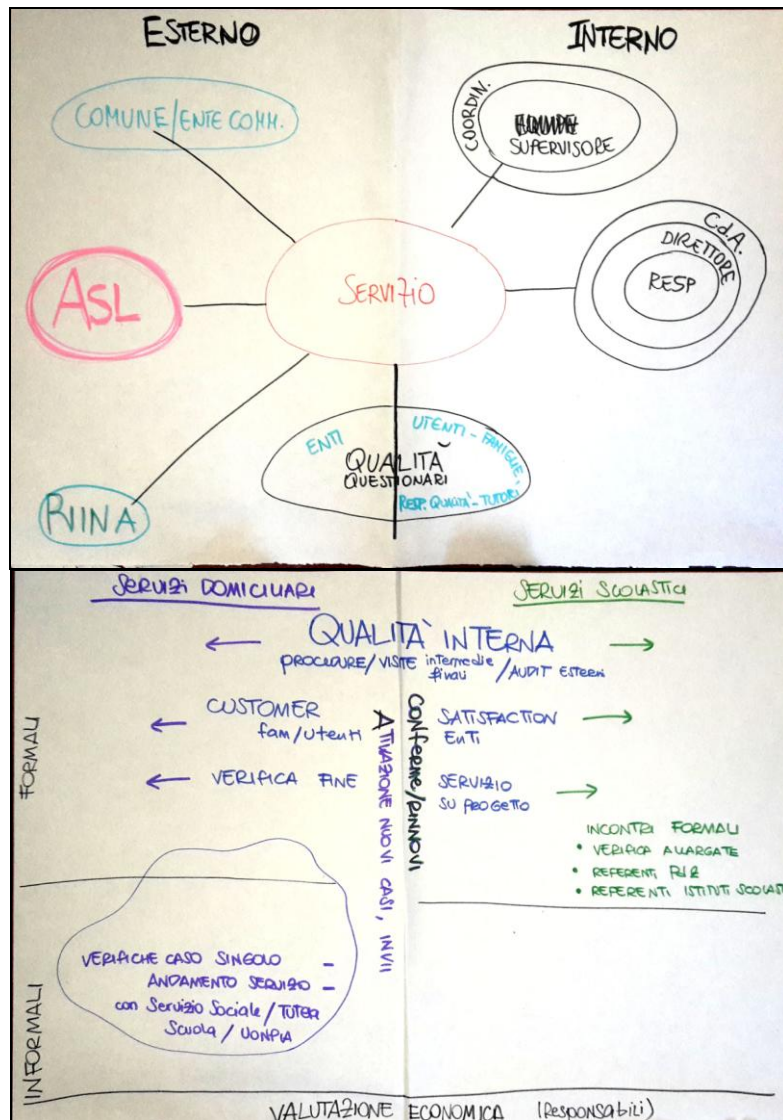 ESTERNO
INTERNO
COMUNE/ENTE COMM.
COORDIN.
SUPERVISORE
C.d.A.
DIRETTORE
RESP
ASL
SERVIZIO
RIINA
ENTI
UTENTI - FAMIGLIE,
RESP. QUALITÀ - TUTORI
QUALITÀ
QUESTIONARI
SERVIZI DOMICILIARI
SERVIZI SCOLASTICI
QUALITÀ INTERNA
PROCEDURE/VISITE intermedie
finali
/AUDIT ESTERNI
FORMALI
CUSTOMER
fam/utenti
SATISFACTION
ENTI
VERIFICA FINE
SERVIZIO
SU PROGETTO
ATTIVAZIONE NUOVI CASI, INVII
CONFERME/RINNOVI
INCONTRI FORMALI
• VERIFICA ALLARGATE
• REFERENTI
• REFERENTI ISTITUTI SCOLAST
INFORMALI
VERIFICHE CASO SINGOLO -
ANDAMENTO SERVIZIO -
con Servizio Sociale / TUTELA
Scuola / UONPIA
VALUTAZIONE ECONOMICA (Responsabili)